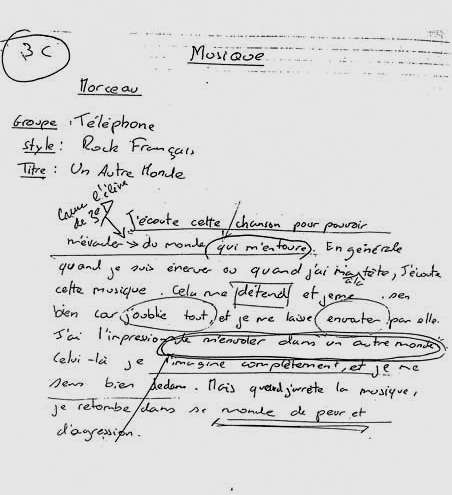 3C
Musique
Morceau
Groupe : Téléphone
Style : Rock Français
Titre : Un Autre Monde
l'élève
de 3e
J'écoute cette chanson pour pouvoir
m'évader du monde qui m'entoure. En générale
quand je suis énerver ou quand j'ai tête, J'écoute
cette musique. Cela me détend et je me sen
bien car j'oublie tout, et je me laisse envouter par elle.
J'ai l'impression de m'envoler dans un autre monde
Celui-là je l'imagine complètement, et je me
sens bien dedans. Mais quand j'arrête la musique,
je retombe dans se monde de peur et
d'agression.